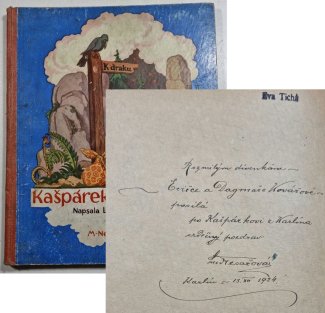 K draku
Kašpárek
Napsala L
M. Ne
Eva Tichá
Rozmilým divenkám
Evičce a Dagmaře Kovářově
posílá
po Kašpárkovi z Karlína
srdečný pozdrav
Karlín 13. XII 1924